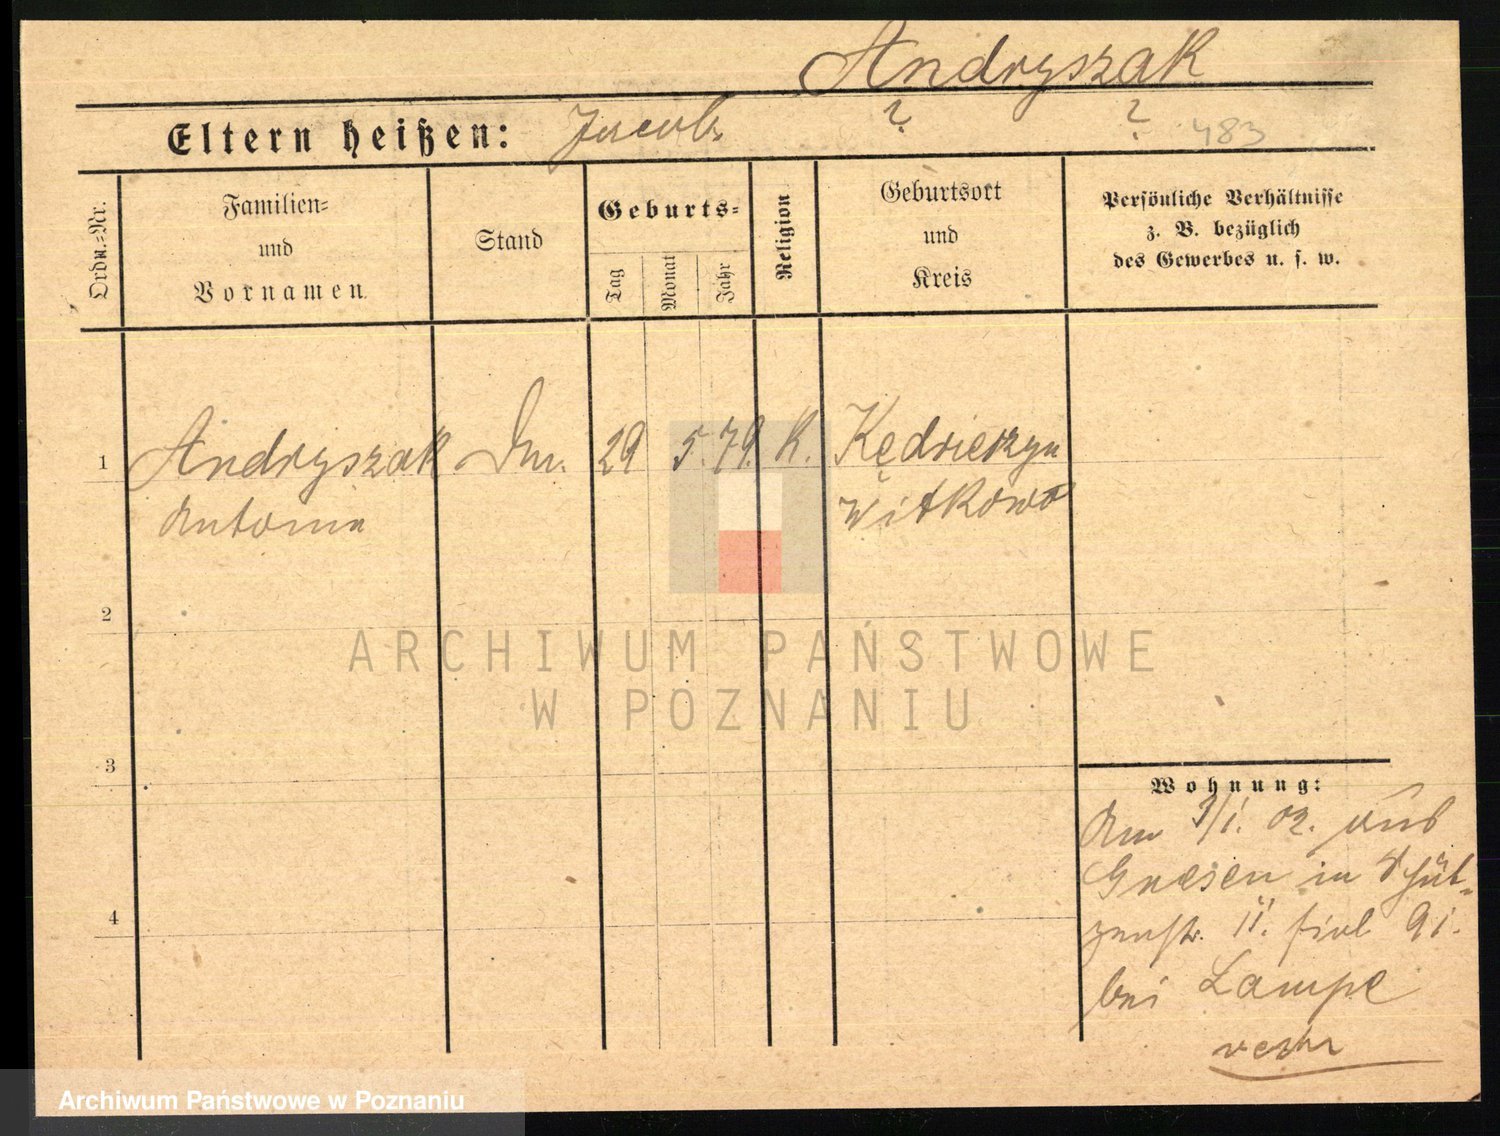 Andryszak
Eltern heißen: Jacob ? ? 483
Ordn.=Nr.
Familien=
und
Vornamen
Stand
Geburts=
Tag
Monat
Jahr
Religion
Geburtsort
und
Kreis
Persönliche Verhältnisse
z. B. bezüglich
des Gewerbes u. s. w.
1 Andryszak Dm. 29 5. 79. K. Kędzierzyn
Antonia Witkowo
2
ARCHIWUM PAŃSTWOWE
W POZNANIU
3
Wohnung:
Am 3/1. 02. aus
Gnesen in Schüt-
zenstr. 11. 91.
bei Lampe
4
Archiwum Państwowe w Poznaniu